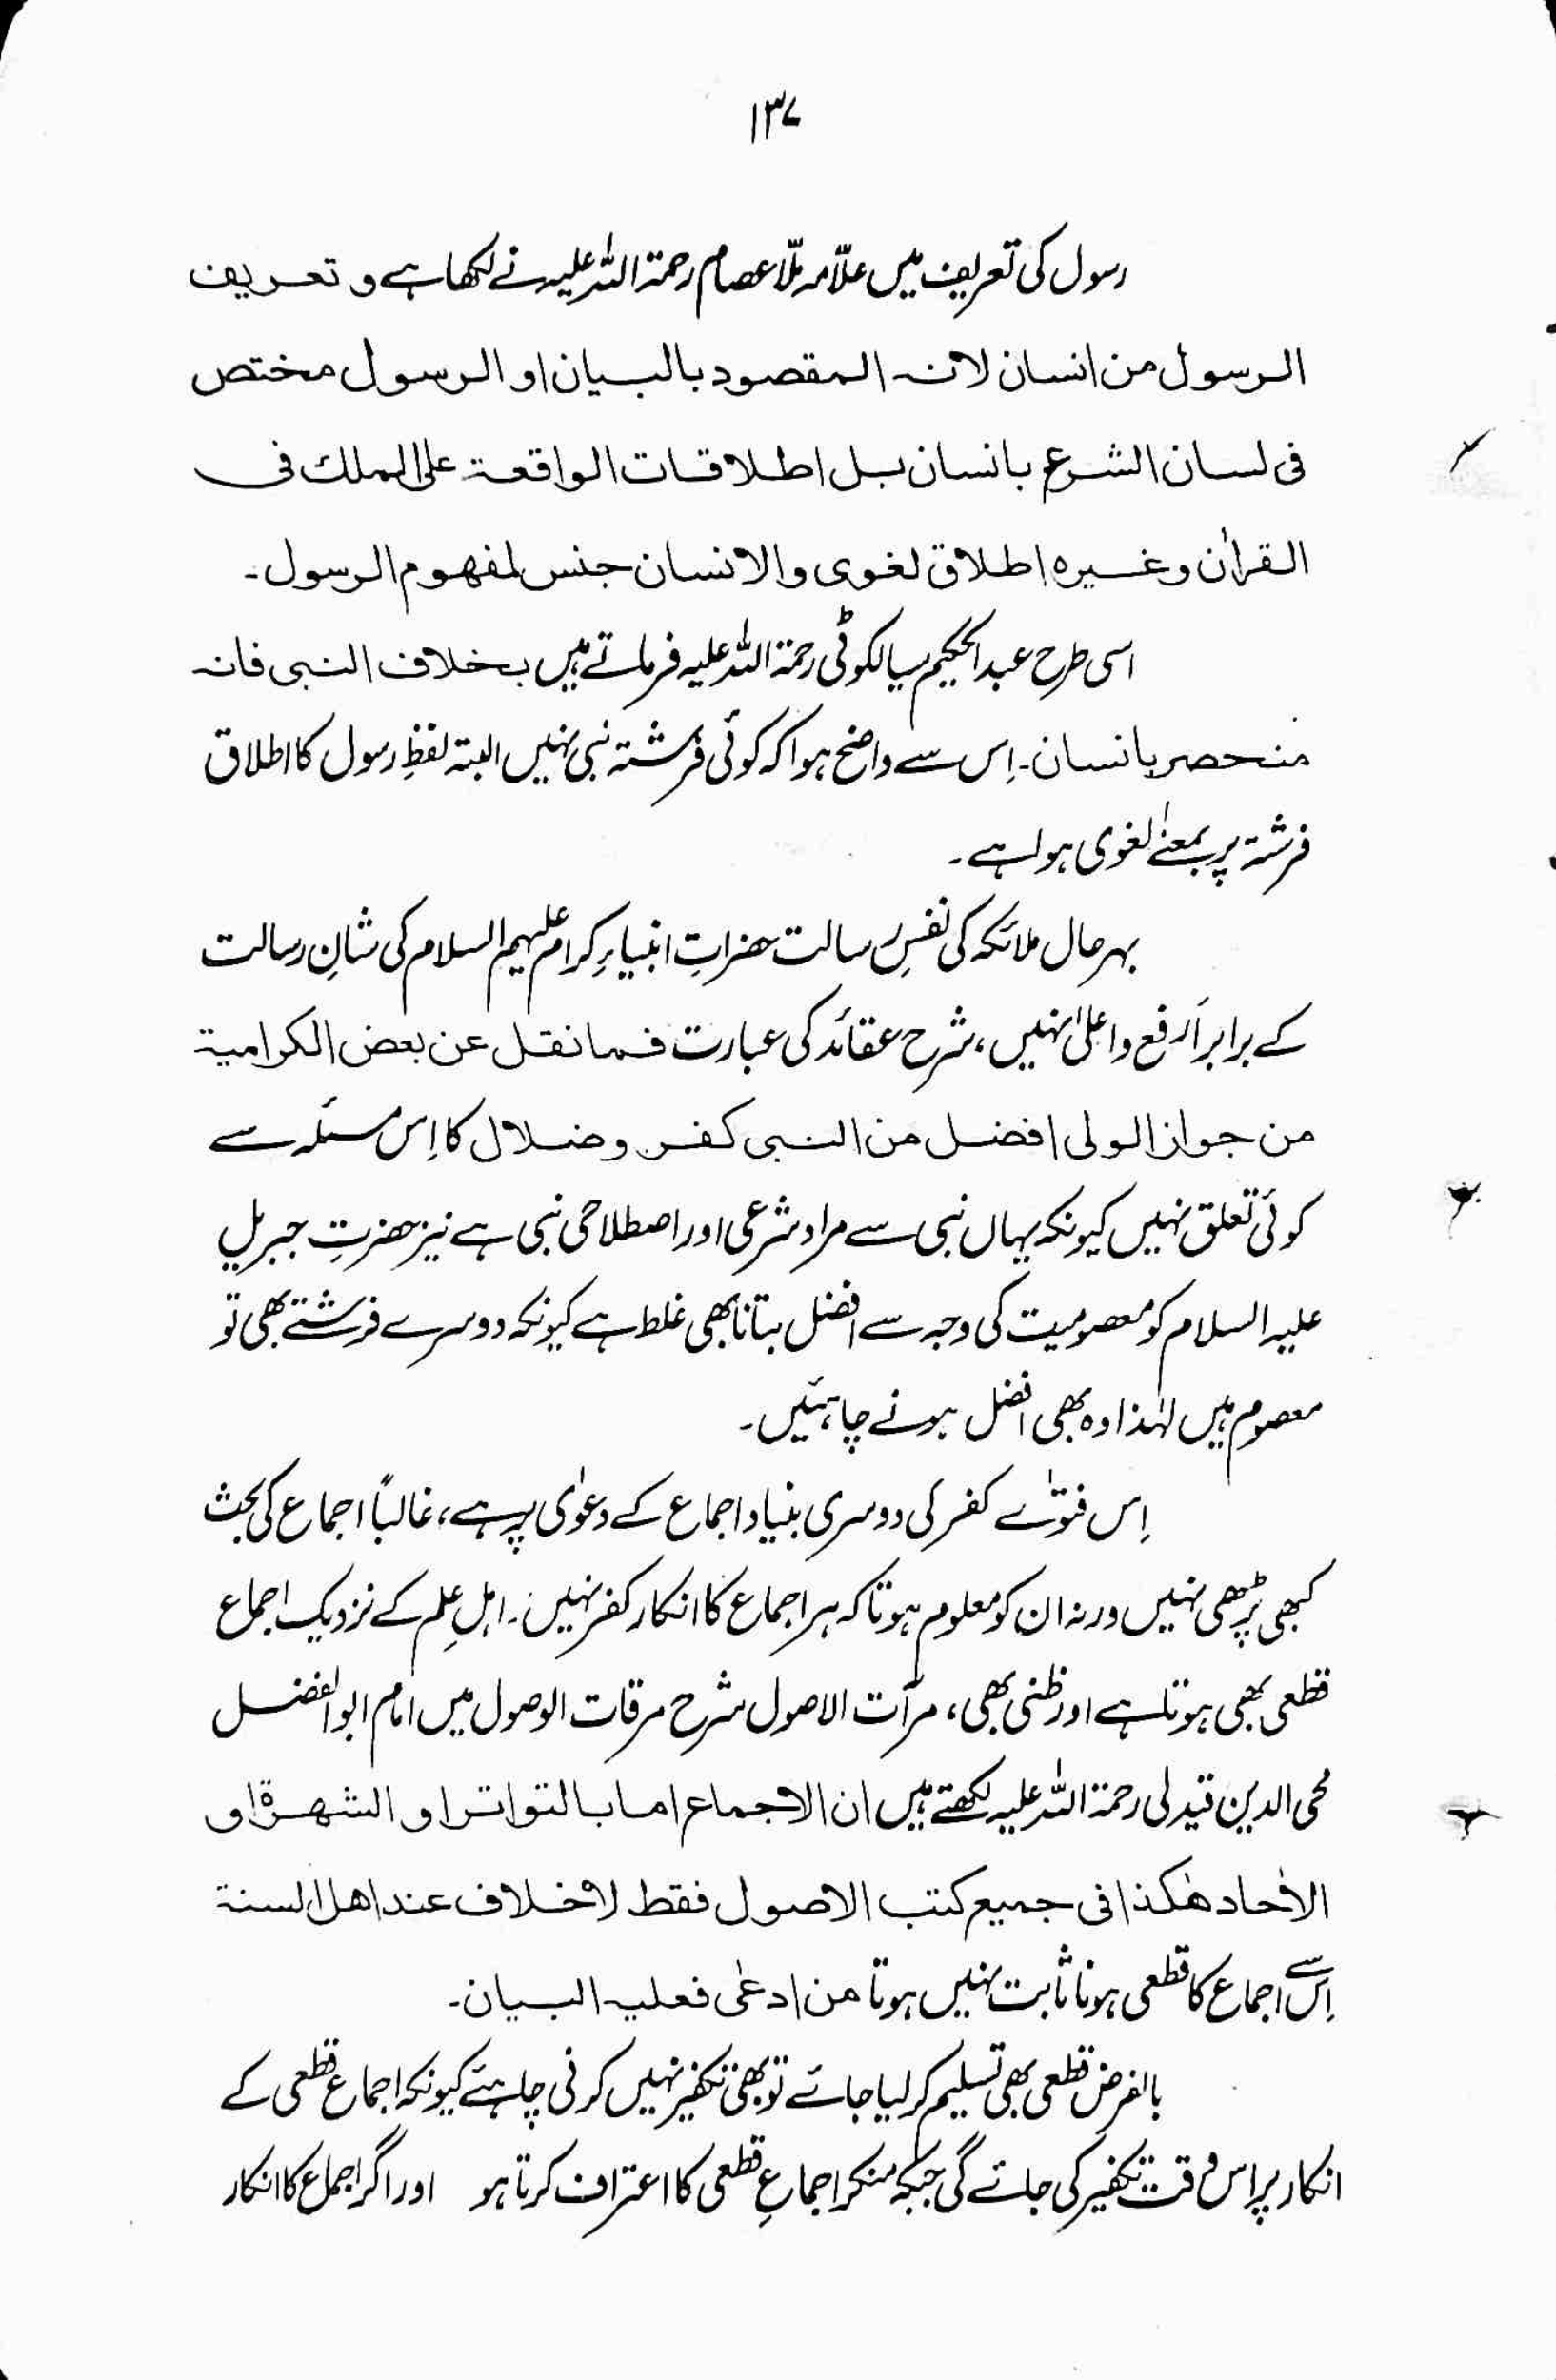 ۱۳۷
رسول کی تعریف میں علّامہ ملّا عصام رحمۃ اللہ علیہ نے لکھا ہے و تعریف
الرسول من انسان لانہ المقصود بالبیان او الرسول مختص
فی لسان الشرع بانسان بل اطلاقات الواقعۃ علی الملك فی
القراٰن وغیرہ اطلاق لغوی والانسان جنس لمفهوم الرسول۔
اسی طرح عبدالحکیم سیالکوٹی رحمۃ اللہ علیہ فرماتے ہیں بخلاف النبی فانہ
منحصر بانسان۔ اِس سے واضح ہوا کہ کوئی فرشتہ نبی نہیں البتہ لفظِ رسول کا اطلاق
فرشتہ پر بمعنےٰ لغوی ہوا ہے۔
بہرحال ملائکہ کی نفسِ رسالت حضراتِ انبیاءِ کرام علیہم السلام کی شانِ رسالت
کے برابر اَرفع و اعلیٰ نہیں، شرح عقائد کی عبارت فما نقل عن بعض الکرامیۃ
من جواز الولی افضل من النبی کفر وضلال کا اِس مسئلہ سے
کوئی تعلق نہیں کیونکہ یہاں نبی سے مراد شرعی اور اصطلاحی نبی ہے نیز حضرتِ جبریل
علیہ السلام کو معصومیت کی وجہ سے افضل بتانا بھی غلط ہے کیونکہ دوسرے فرشتے بھی تو
معصوم ہیں لہٰذا وہ بھی افضل ہونے چاہئیں۔
اِس فتوٰے کفر کی دوسری بنیاد اجماع کے دعوٰی پر ہے، غالباً اجماع کی بحث
کبھی پڑھی نہیں ورنہ ان کو معلوم ہوتا کہ ہر اجماع کا انکار کفر نہیں۔ اہلِ عِلم کے نزدیک اجماع
قطعی بھی ہوتا ہے اور ظنی بھی، مرآت الاصول شرح مرقات الوصول میں امام ابوالفضل
محی الدین قیدلی رحمۃ اللہ علیہ لکھتے ہیں ان الاجماع اما بالتواتر او الشهرۃ او
الاٰحاد هٰکذا فی جمیع کتب الاصول فقط لاخلاف عند اهل السنۃ
اِس سے اجماع کا قطعی ہونا ثابت نہیں ہوتا من ادعٰی فعلیہ البیان۔
بالفرض قطعی بھی تسلیم کر لیا جائے تو بھی تکفیر نہیں کرنی چاہئے کیونکہ اجماع قطعی کے
انکار پر اس وقت تکفیر کی جائے گی جبکہ منکر اجماعِ قطعی کا اعتراف کرتا ہو اور اگر اجماع کا انکار